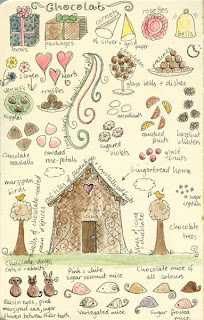 Chocolat
boxes
packages
cornets
of silver + gold paper
rosettes
bells
flowers
hearts
glass bells + dishes
Venus's
nipples
truffles
mendiants
candied
fruits
hazelnut
clusters
Chocolate
seashells
candied
rose-petals
sugared
violets
glacé
fruits
Gingerbread house
marzipan
birds
sugar
crystals
chocolate
trees
Chocolate dogs,
cats + rabbits
Pink + white
sugar coconut mice
Chocolate mice of
all colours
Raisin eyes, pink
marzipan ears,
sugar
flowers between their teeth
Variegated mice
Sugar frosted
mice